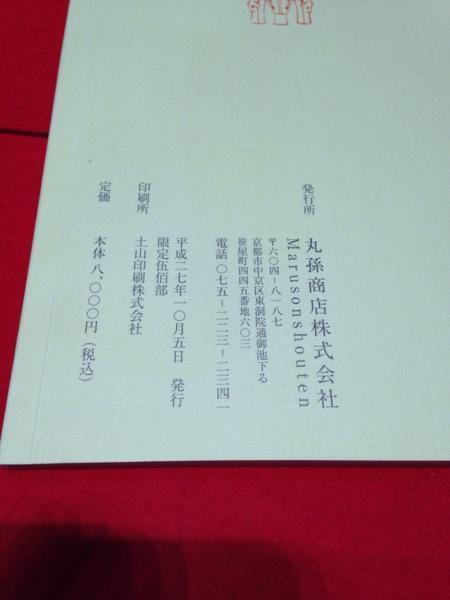 発行所
丸孫商店株式会社
Marusonshouten
〒六〇四－八一八七
京都市中京区東洞院通御池下る
笹屋町四四五番地六〇三
電話 〇七五－二二三－二三四一
平成二七年一〇月五日 発行
限定伍佰部
印刷所
土山印刷株式会社
定価
本体 八,〇〇〇円（税込）